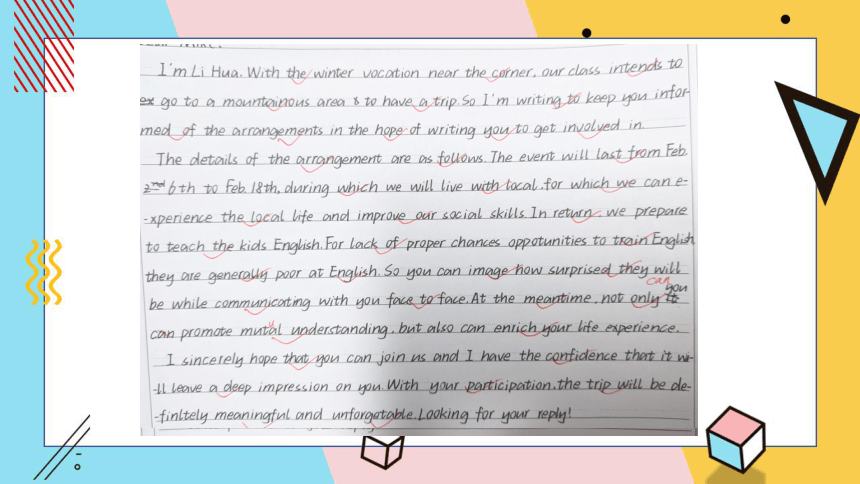 I'm Li Hua. With the winter vocation near the corner, our class intends to
ex go to a mountainous area & to have a trip. So I'm writing to keep you infor-
med of the arrangements in the hope of writing you to get involved in.
The details of the arrangement are as follows. The event will last from Feb.
2nd 6th to Feb. 18th, during which we will live with local, for which we can e-
-xperience the local life and improve our social skills. In return, we prepare
to teach the kids English. For lack of proper chances oppotunities to train English,
they are generally poor at English. So you can image how surprised they will
be while communicating with you face to face. At the meantime, not only it
can you
can promote mutal understanding, but also can enrich your life experience.
u
I sincerely hope that you can join us and I have the confidence that it wi-
-ll leave a deep impression on you. With your participation, the trip will be de-
-finltely meaningful and unforgetable. Looking for your reply!